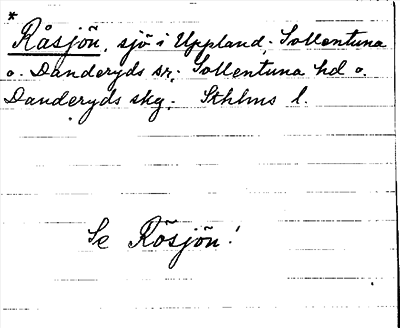 *
Råsjön, sjö i Uppland; Sollentuna
o. Danderyds sr; Sollentuna hd o.
Danderyds skg; Sthlms l.
Se Rösjön!